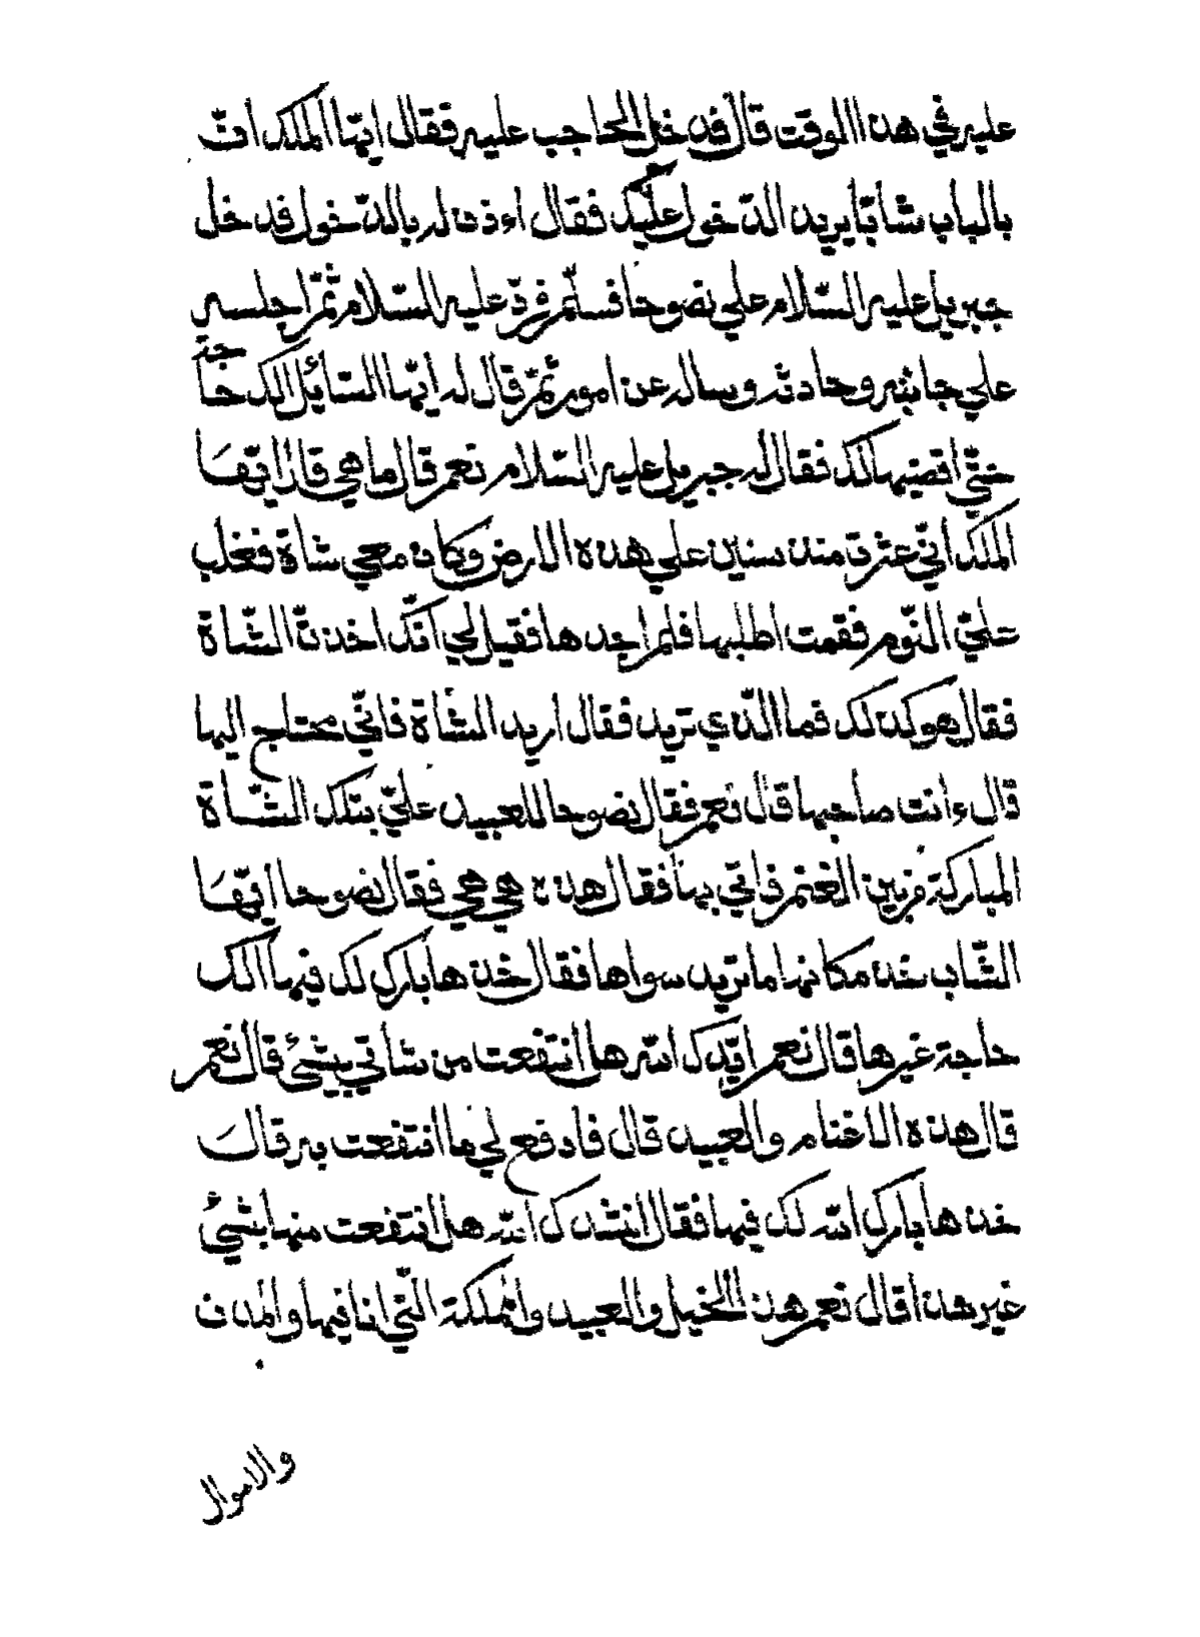 عليه في هذا الوقت قال فدخل الحاجب عليه فقال ايها الملك ان
بالباب شابا يريد الدخول عليك فقال اءذن له بالدخول فدخل
جبريل عليه السلام علي نصوحا فسلم فرد عليه السلام ثم اجلسه
علي جانبه وحادثه وساله عن امور ثم قال له ايها السائل الك حاجة
حتي اقضيها لك فقال له جبريل عليه السلام نعم قال ما هي قال ايها
الملك اني عثرت منذ سنين علي هذه الارض وكان معي شاة فغلب
علي النوم فقمت اطلبها فلم اجدها فقيل لي انك اخذت الشاة
فقال هو كذلك فما الذي تريد فقال اريد الشاة فاني محتاج اليها
قال ءانت صاحبها قال نعم فقال نصوحا للعبيد علي بتلك الشاة
المباركة من بين الغنم فاتي بها فقال هذه هي هي فقال نصوحا ايها
الشاب خذ مكانها ما تريد سواها فقال خذها بارك لك فيها الك
حاجة غيرها قال نعم ايدك الله هل انتفعت من شاتي بشيء قال نعم
قال هذه الاغنام والعبيد قال فادفع لي ما انتفعت به قال
خذها بارك الله لك فيها فقال انشدك الله هل انتفعت منها بشيء
غير هذا قال نعم هذا الخيل والعبيد والمملكة التي انا فيها والمدن
والاموال